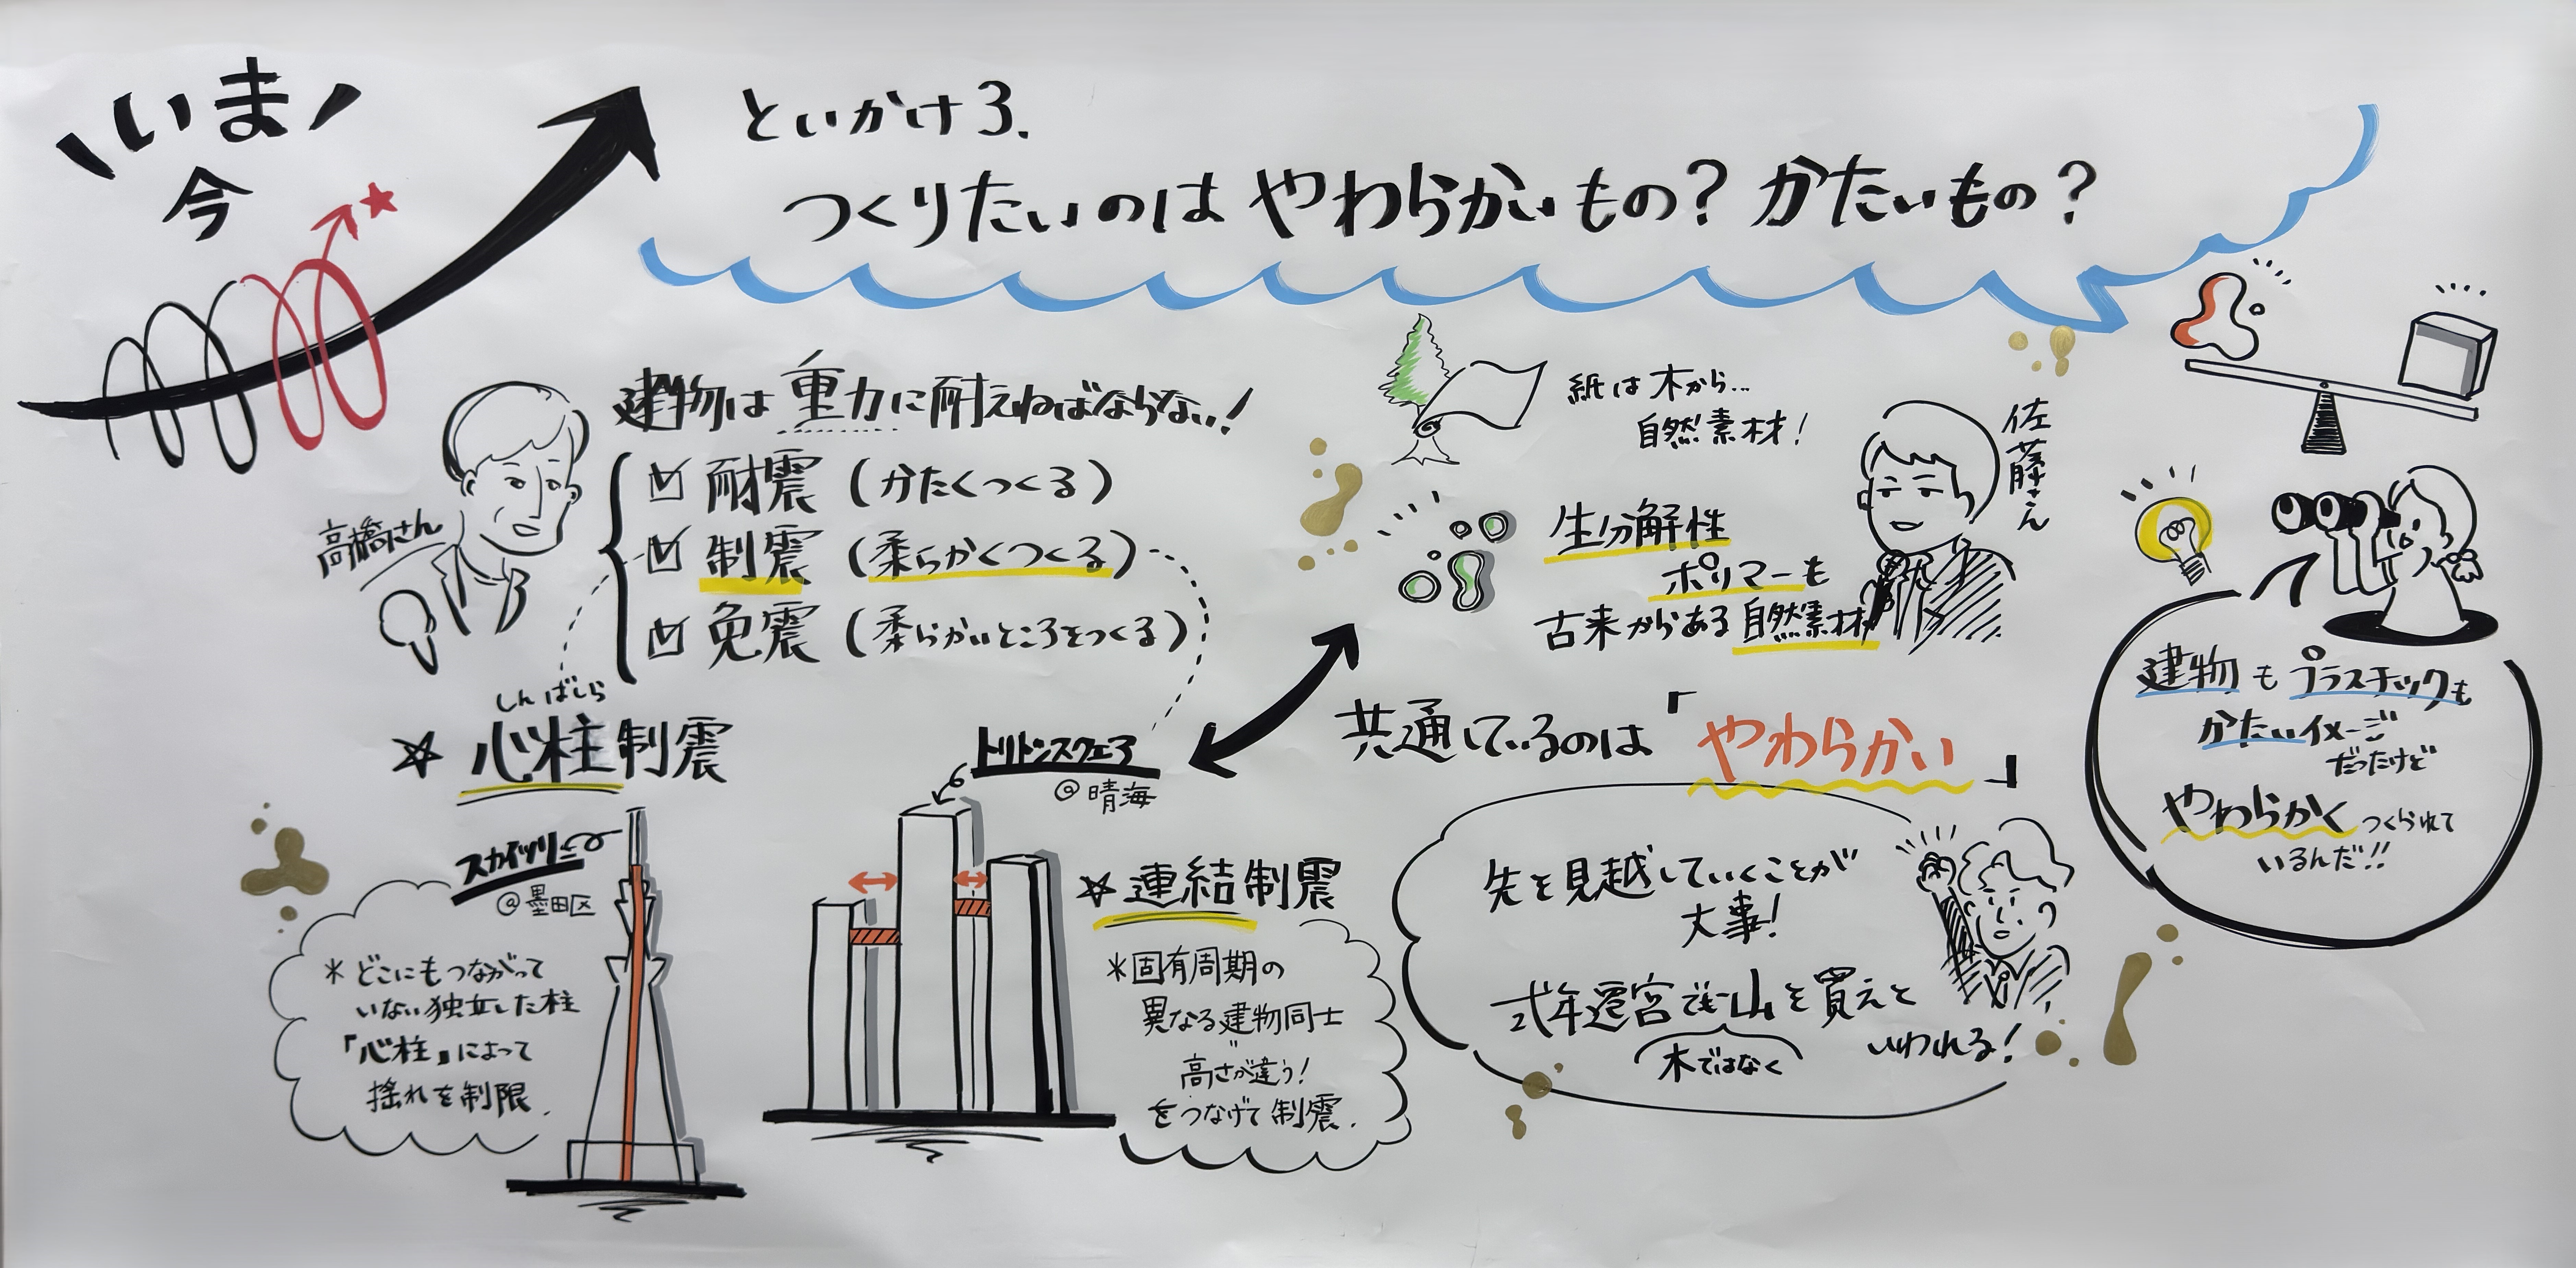 いま
今
といかけ3.
つくりたいのは やわらかいもの？ かたいもの？
高橋さん
建物は重力に耐えねばならない！
耐震（かたくつくる）
制震（柔らかくつくる）
免震（柔らかいところをつくる）
しんばしら
☆ 心柱制震
スカイツリー
@墨田区
＊どこにもつながって
いない独立した柱
「心柱」によって
揺れを制限.
トリトンスクエア
@晴海
☆ 連結制震
＊固有周期の
異なる建物同士
〃
高さが違う！
をつなげて制震.
紙は木から…
自然素材！
佐藤さん
生分解性
ポリマーも
古来からある自然素材
共通しているのは「やわらかい」
先を見越していくことが
大事！
式年遷宮でも山を買えと
いわれる！
木ではなく
建物もプラスチックも
かたいイメージ
だったけど
やわらかくつくられて
いるんだ!!